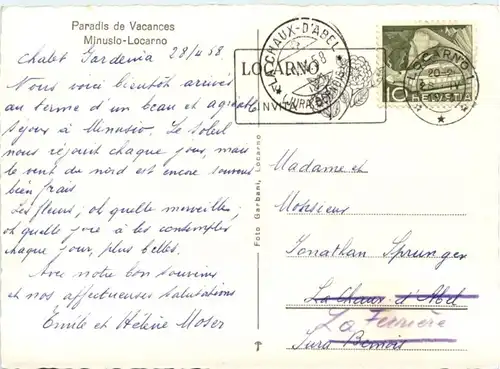 Paradis de Vacances
Minusio-Locarno
Chalet Gardenia 28/4 58
Nous voici bientôt arrivés
au terme d'un beau et agréable
séjour à Minusio. Le soleil
nous réjouit chaque jour, mais
le vent du nord est encore souvent
bien frais
Les fleurs; oh quelle merveille;
oh quelle joie à les contempler
chaque jour, plus belles.
Avec notre bon souvenir
et nos affectueuses salutations
Emile et Hélène Moser
Foto Garbani, Locarno
LA CHAUX-D'ABEL
(JURA BERNOIS)
LOCARNO
INVIT
LOCARNO 1
20-2
1958
10
Madame et
Monsieur
Jonathan Sprunger
La Chaux d'Abel
La Ferrière
Jura Bernois